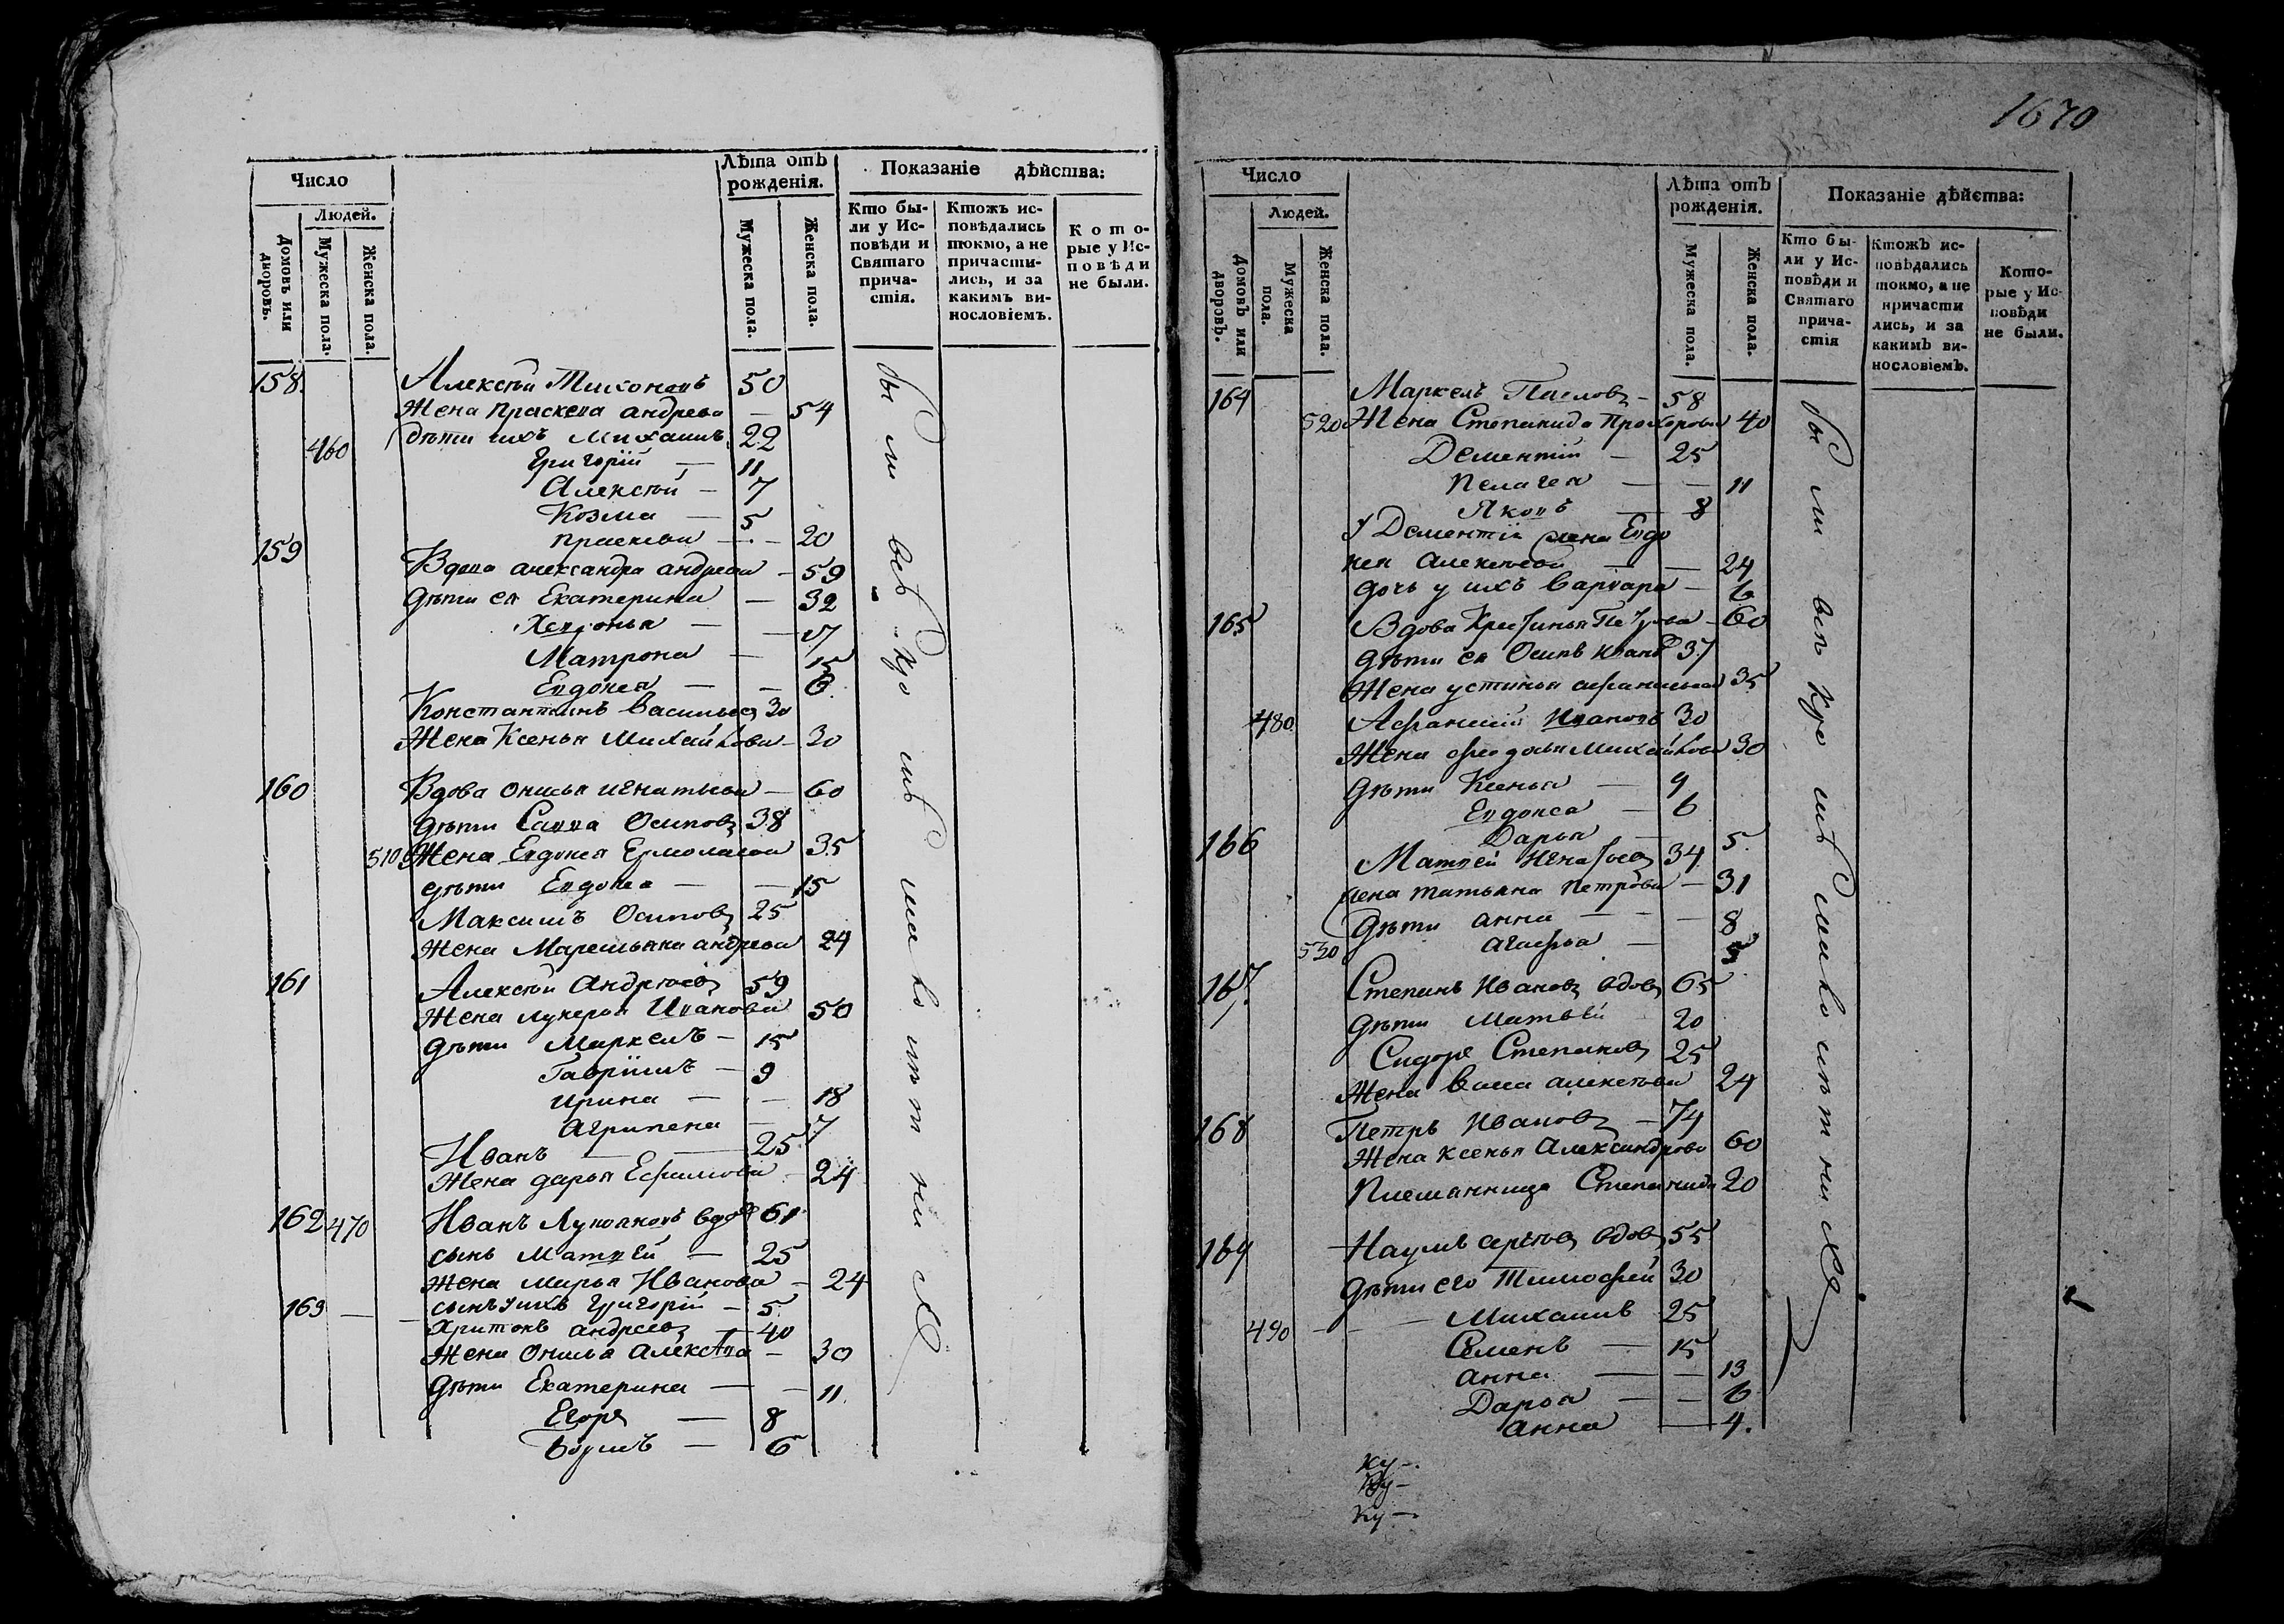 Число
Людей.
Домовъ или дворовъ.
Мужеска пола.
Женска пола.
Лѣта отъ рожденія.
Мужеска пола.
Женска пола.
Показаніе дѣйства:
Кто бы-
ли у Ис-
повѣди и
Святаго
прича-
стія.
Ктожъ ис-
повѣдались
токмо, а не
причасти-
лись, и за
какимъ ви-
нословіемъ.
Кото-
рые у Ис-
повѣди
не были.
158. Алексѣй 50
Жена Праскева андрева — 54
460 дѣти ихъ Михаилъ 22
Григорій — 11
Алексѣй — 7
Козма — 5
Праскева — 20
159 Вдова александра андреева — 59
Дѣти ея Екатерина — 32
— 17
Матрона — 15
Евдокея — 6
Константинъ Васильев 30
Жена Ксенья Михайлова — 30
160 Вдова Онисья игнатьева — 60
Дѣти Савва Осипов 38
510 Жена Евдокея Ермолаева 35
дѣти Евдокея — 15
Максимъ Осипов 25
Жена андреева 24
161 Алексѣй Андрѣев 59
Жена лукерья Иванова 50
Дѣти Маркелъ — 15
Гавріилъ — 9
ирина — 18
агрипена — 7
Иванъ — 25
Жена дарья Ефимова 24
162 470 Иванъ вдов 61
сынъ Матвей — 25
Жена марья Иванова — 24
сынъ у ихъ Григорій — 5
163 Харитонъ андреев — 40
Жена Онисья — 30
Дѣти Екатерина — 11
Егоръ — 8
— 6
были всѣ на
1670
Число
Людей.
Домовъ или дворовъ.
Мужеска пола.
Женска пола.
Лѣта отъ рожденія.
Мужеска пола.
Женска пола.
Показаніе дѣйства:
Кто бы-
ли у Ис-
повѣди и
Святаго
прича-
стія
Ктожъ ис-
повѣдались
токмо, а не
причасти
лись, и за
какимъ ви-
нословіемъ.
Кото-
рые у Ис-
повѣди
не были.
164 Маркелъ Павлов — 58
520 Жена Степанида Прохорова 40
Дементій — 25
Пелагея — 11
Яковъ — 8
У Дементія жена Евдо
кея алексеева — 24
дочь у ихъ Варвара — 6
165 Вдова Петрова — 60
Дѣти ея Осипъ Иванов 37
Жена устинья афанасьева 35
480 Афанасій Ивановъ 30
Жена федосья Михайлова 30
Дѣти Ксенья — 9
Евдокея — 6
Дарья — 5
166 Матвей 34
жена татьяна Петрова — 31
Дѣти анна — 8
530 агафья — 5
167. Степанъ Иванов вдов 65
Дѣти Матвей 20
Сидоръ Степанов 25
Жена алексѣева 24
168 Петръ Иванов — 74
Жена ксенья Александрова 60
Племянница Степанида 20
169 Наумъ вдов 55
Дѣти его Тимофей 30
490 — Михаилъ 25
Семенъ — 15
анна — 13
Дарья — 6
анна — 4.
были всѣ
ку —.
ку —
ку —.